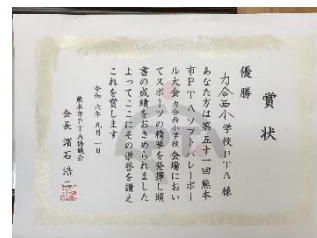 賞状
優勝
力合西小学校PTA様
あなた方は第五十一回熊本
市PTAソフトバレーボー
ル大会力合西小学校会場におい
てスポーツの精華を発揮し頭
書の成績をおさめられました
よってここにその栄誉を讃え
これを賞します
令和六年九月一日
熊本市PTA協議会
会長 濱石 浩二